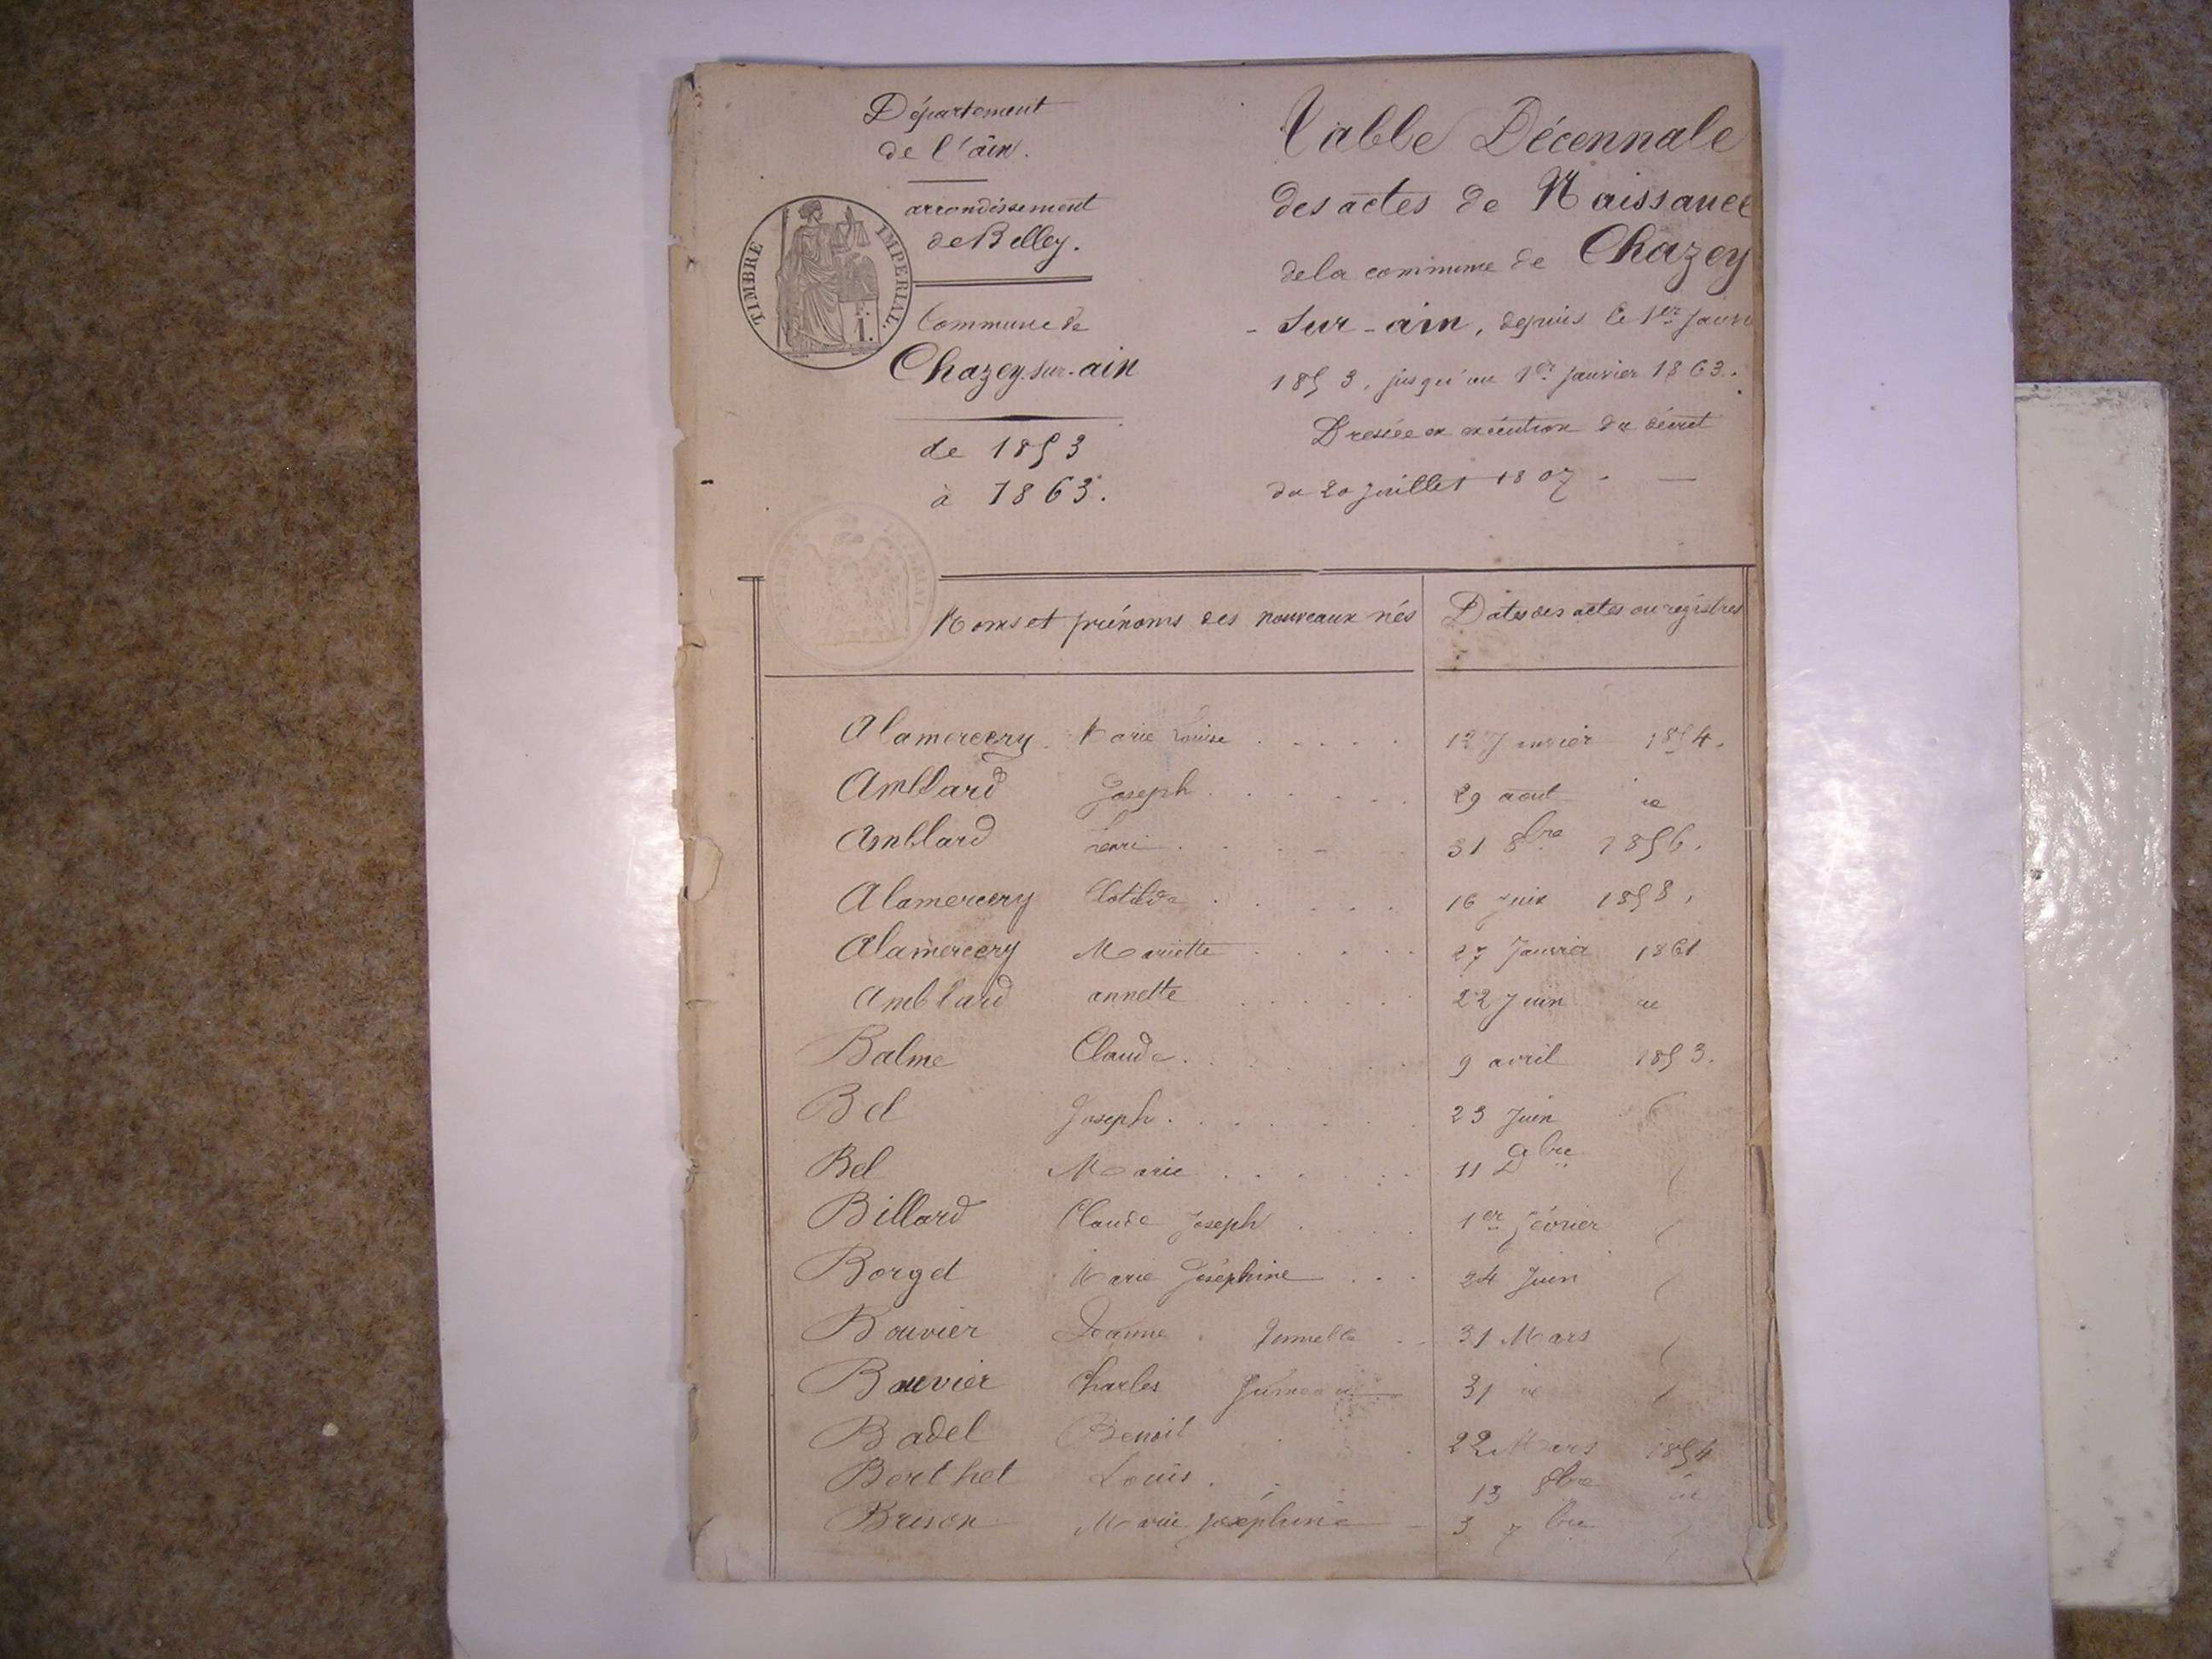 Département
de l'ain.
arrondissement
de Belley.
TIMBRE IMPERIAL.
1.
Commune de
Chazey-sur-ain
de 1853
à 1863.
Table Décennale
des actes de Naissance
de la commune de Chazey
- sur-ain, depuis le 1er Janv
1853, jusqu'au 1er janvier 1863.
Dressée en exécution du décret
du 20 juillet 1807. —
Noms et prénoms des nouveaux nés Dates des actes ou registres
Alamercery Marie Louise 12 Janvier 1854.
Amblard Joseph 29 aout id
Amblard henri 31 8bre 1856.
Alamercery Clotilde 16 Juin 1858.
Alamercery Mariette 27 Janvier 1861
Amblard annette 22 Juin id
Balme Claude 9 avril 1853.
Bel Joseph 23 Juin
Bel Marie 11
Billard Claude Joseph 1er février
Borget Marie Joséphine 24 Juin
Bouvier Jeanne Jumelle 31 Mars
Bouvier Charles Jumeau 31 id
Badel Benoit 22 Mars 1854
Berthet Louis 13 8bre id
Brison Marie Joséphine 3 7bre